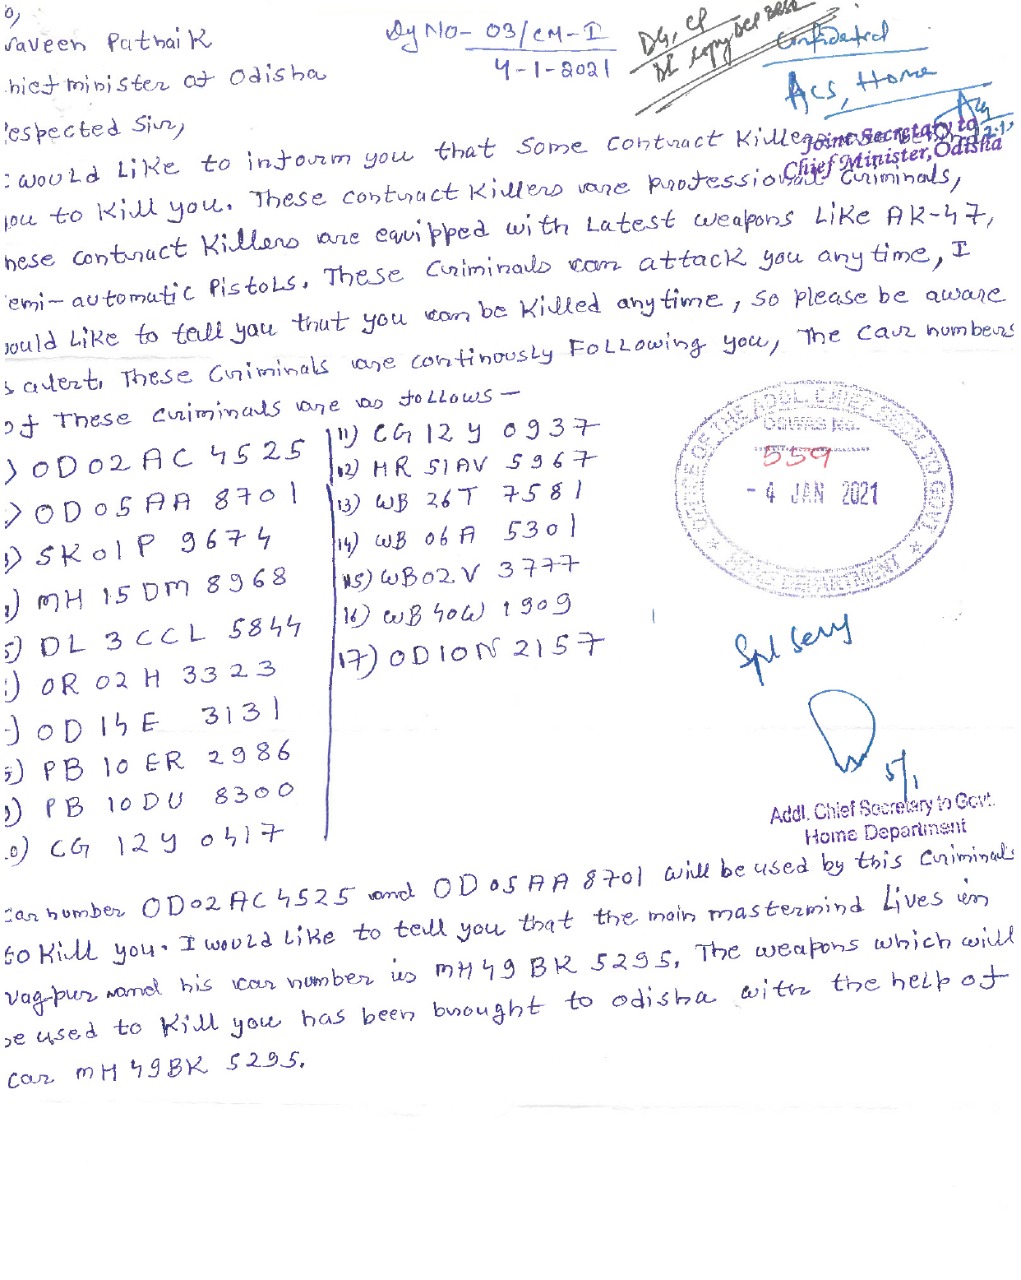 raveen Pathaik
Dy No- 03/CM-I
4-1-2021
DG, CP
Confidential
hief minister of Odisha
ACS, Home
espected Sir,
Joint Secretary to
Chief Minister, Odisha
would Like to inform you that some contract Killers
you to Kill you. These contract Killers are professional Criminals,
hese contract Killers are equipped with Latest weapons Like AK-47,
emi-automatic Pistols. These Criminals can attack you anytime, I
would Like to tell you that you can be Killed anytime, so please be aware
s alert. These Criminals are continously Following you, The car numbers
of These criminals are as follows -
) OD02AC 4525
) OD05AA 8701
) SK01P 9674
) MH 15DM 8968
5) DL 3 CCL 5844
) OR 02 H 3323
) OD 14E 3131
) PB 10 ER 2986
) PB 10DU 8300
0) CG 12Y 0417
11) CG 12Y 0937
12) HR 51AV 5967
13) WB 26T 7581
14) WB 06A 5301
15) WB02V 3777
16) WB 40W 1909
17) OD10N 2157
OFFICE OF THE ADDL. CHIEF SECY. TO GOVT.
OSWAS No.
559
- 4 JAN 2021
HOME DEPARTMENT
Spl Secy
5/1
Addl. Chief Secretary to Govt.
Home Department
car number OD02AC4525 and OD05AA8701 will be used by this Criminals
to Kill you. I would Like to tell you that the main mastermind Lives in
Nagpur and his car number is MH49BK 5295. The weapons which will
be used to Kill you has been brought to odisha with the help of
car MH49BK 5295.